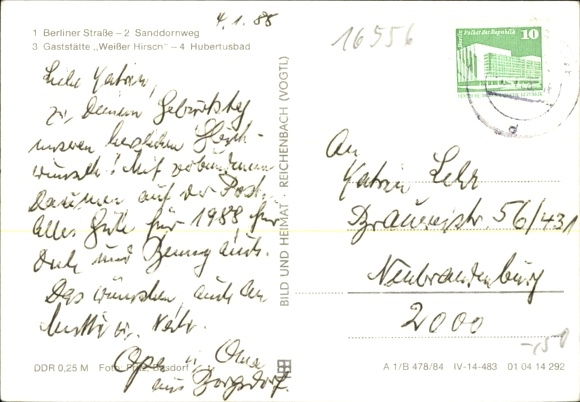 4.1.88
1 Berliner Straße – 2 Sanddornweg
3 Gaststätte „Weißer Hirsch" – 4 Hubertusbad
16556
Berlin, Palast der Republik
10
Liebe Katrin,
zu Deinem Geburtstag
unseren herzlichen Glück-
wunsch! Mit verbundenem
Daumen auf der Post.
Alles Gute für 1988 für
Dich und
Das wünschen auch an
Mutti u. Vati
Opa u. Oma
aus Borgsdorf.
BILD UND HEIMAT · REICHENBACH (VOGTL)
An
Katrin Lehr
56/431
Neubrandenburg
2000
-,50
DDR 0,25 M Foto:
A 1/B 478/84 IV-14-483 01 04 14 292